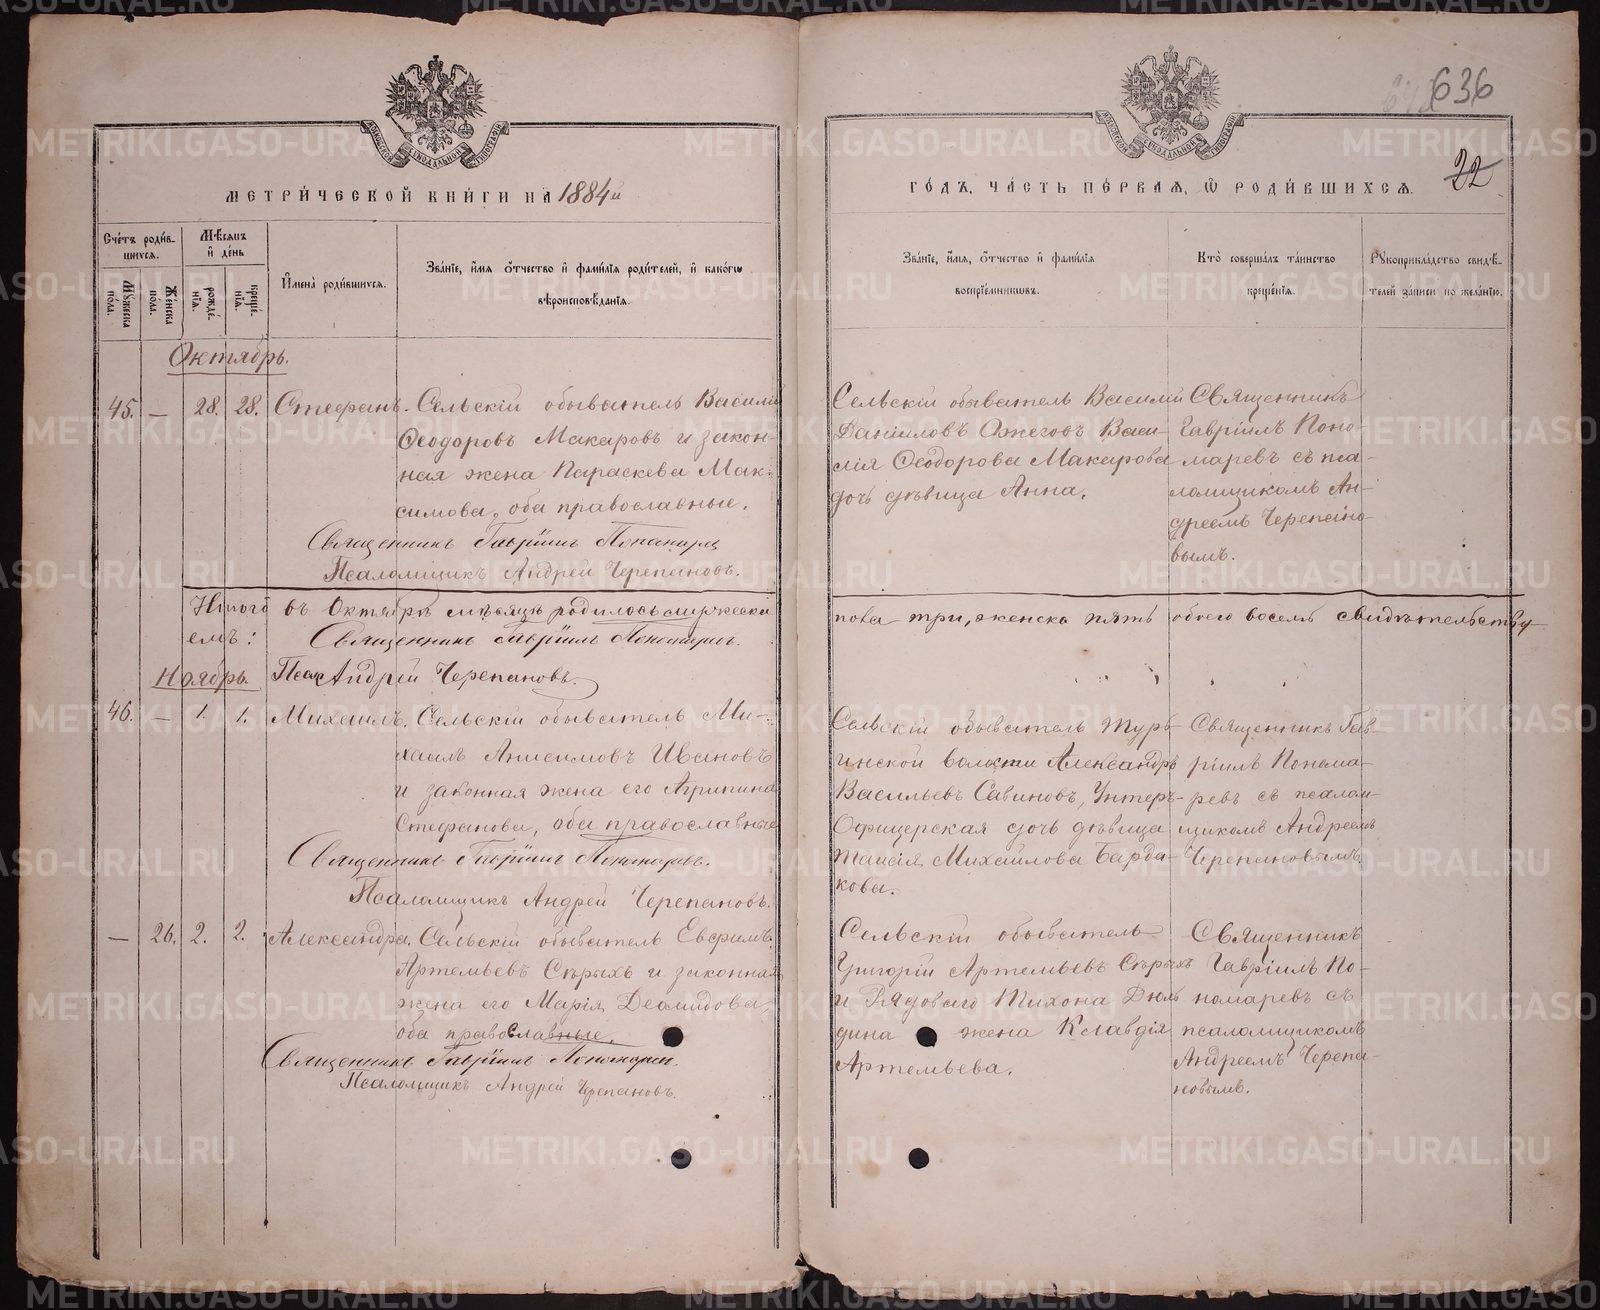 636
22
МЕТРИ́ЧЕСКОЙ КНИ́ГИ НА 1884й
ГО́ДЪ, ЧА́СТЬ ПЕ́РВАЯ, Ѽ РОДИ́ВШИХСЯ.
Сче́тъ роди́в-
шихся.
Мꙋ́жеска по́ла.
Же́нска по́ла.
Мѣ́сяцъ
и҆ де́нь
рожде́-
нїѧ.
креще́-
нїѧ.
И҆мена̀ роди́вшихся.
Зва́нїе, и҆́мѧ ѻ҆́тчество и҆ фами́лїѧ роди́телей, и҆ како́гѡ
вѣроисповѣ́данїѧ.
Зва́нїе, и҆́мѧ, ѻ҆́тчество и҆ фами́лїѧ
воспрїе́мникѡвъ.
Кто̀ соверша́лъ та́инство
креще́нїѧ.
Рꙋкоприкла́дство свидѣ́-
телей за́писи по жела́нїю.
Октябрь.
45. — 28. 28. Стефанъ. Сельскій обыватель Василій
Ѳеодоровъ Макаровъ и закон-
ная жена Параскева Мак-
симова, оба православные.
Священникъ Гавріилъ Пономаревъ
Псаломщикъ Андрей Черепановъ.
Сельскій обыватель Василій
Даниловъ Ожеговъ Васи-
лія Ѳеодорова Макарова
дочь дѣвица Анна.
Священникъ
Гавріилъ Поно-
маревъ съ пса-
ломщикомъ Ан-
дреемъ Черепано-
вымъ.
Итого въ Октябрѣ мѣсяцѣ родилось мужеска
пола три, женска пять обоего восемь свидѣтельству
емъ: Священникъ Гавріилъ Пономаревъ.
Ноябрь. Псал Андрей Черепановъ.
46. — 1. 1. Михаилъ. Сельскій обыватель Ми-
хаилъ Анисимовъ Ивановъ
и законная жена его Агрипина
Стефанова, оба православные
Священникъ Гавріилъ Пономаревъ.
Псаломщикъ Андрей Черепановъ.
Сельскій обыватель Турь-
инской волости Александръ
Васильевъ Савиновъ, Унтеръ-
Офицерская дочь дѣвица
Таисія Михаилова Барда-
кова.
Священникъ Гав-
ріилъ Понома-
ревъ съ псалом-
щикомъ Андреемъ
Черепановымъ.
— 26. 2. 2. Александра. Сельскій обыватель Евфимъ
Артемьевъ Сѣрыхъ и законная
жена его Марія Деомидова,
оба православные.
Священникъ Гавріилъ Пономаревъ.
Псаломщикъ Андрей Черепановъ.
Сельскій обыватель
Григорій Артемьевъ Сѣрыхъ
и Рядоваго Тихона Дюль
дина жена Клавдія
Артемьева.
Священникъ
Гавріилъ По-
номаревъ съ
псаломщикомъ
Андреемъ Черепа-
новымъ.
METRIKI.GASO-URAL.RU